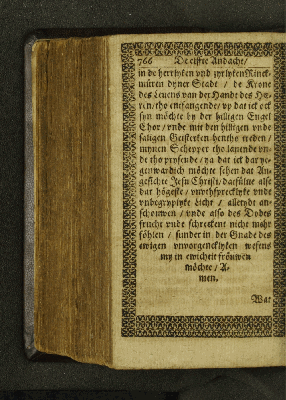 766 De erste Andacht/
in de herrliken vnd
müren dyner Stadt / de Krone
des Leuens van der Handt des He-
ren / tho entfangende / vp dat ick ock
syn möchte by der hilligen Engel
Chor / vnde mit den hilligen vnde
saligen Geisteren henthotreden /
mynen Schepper tho lauende vn-
de tho prysende / ya dat ick dar ye-
genwardich möchte sehen dat An-
gesichte Jesu Christi / dat
dat högeste / vnvthsprecklyke vnde
vnbegryplyke Licht / alletydt an-
schouwen / vnde also des Dodes
frucht vnde schreckent nicht mehr
föhlen / sunder in der Gnade des
ewigen vnvorgencklyken wesens
my in ewicheit fröuwen
möchte / A-
men.
War